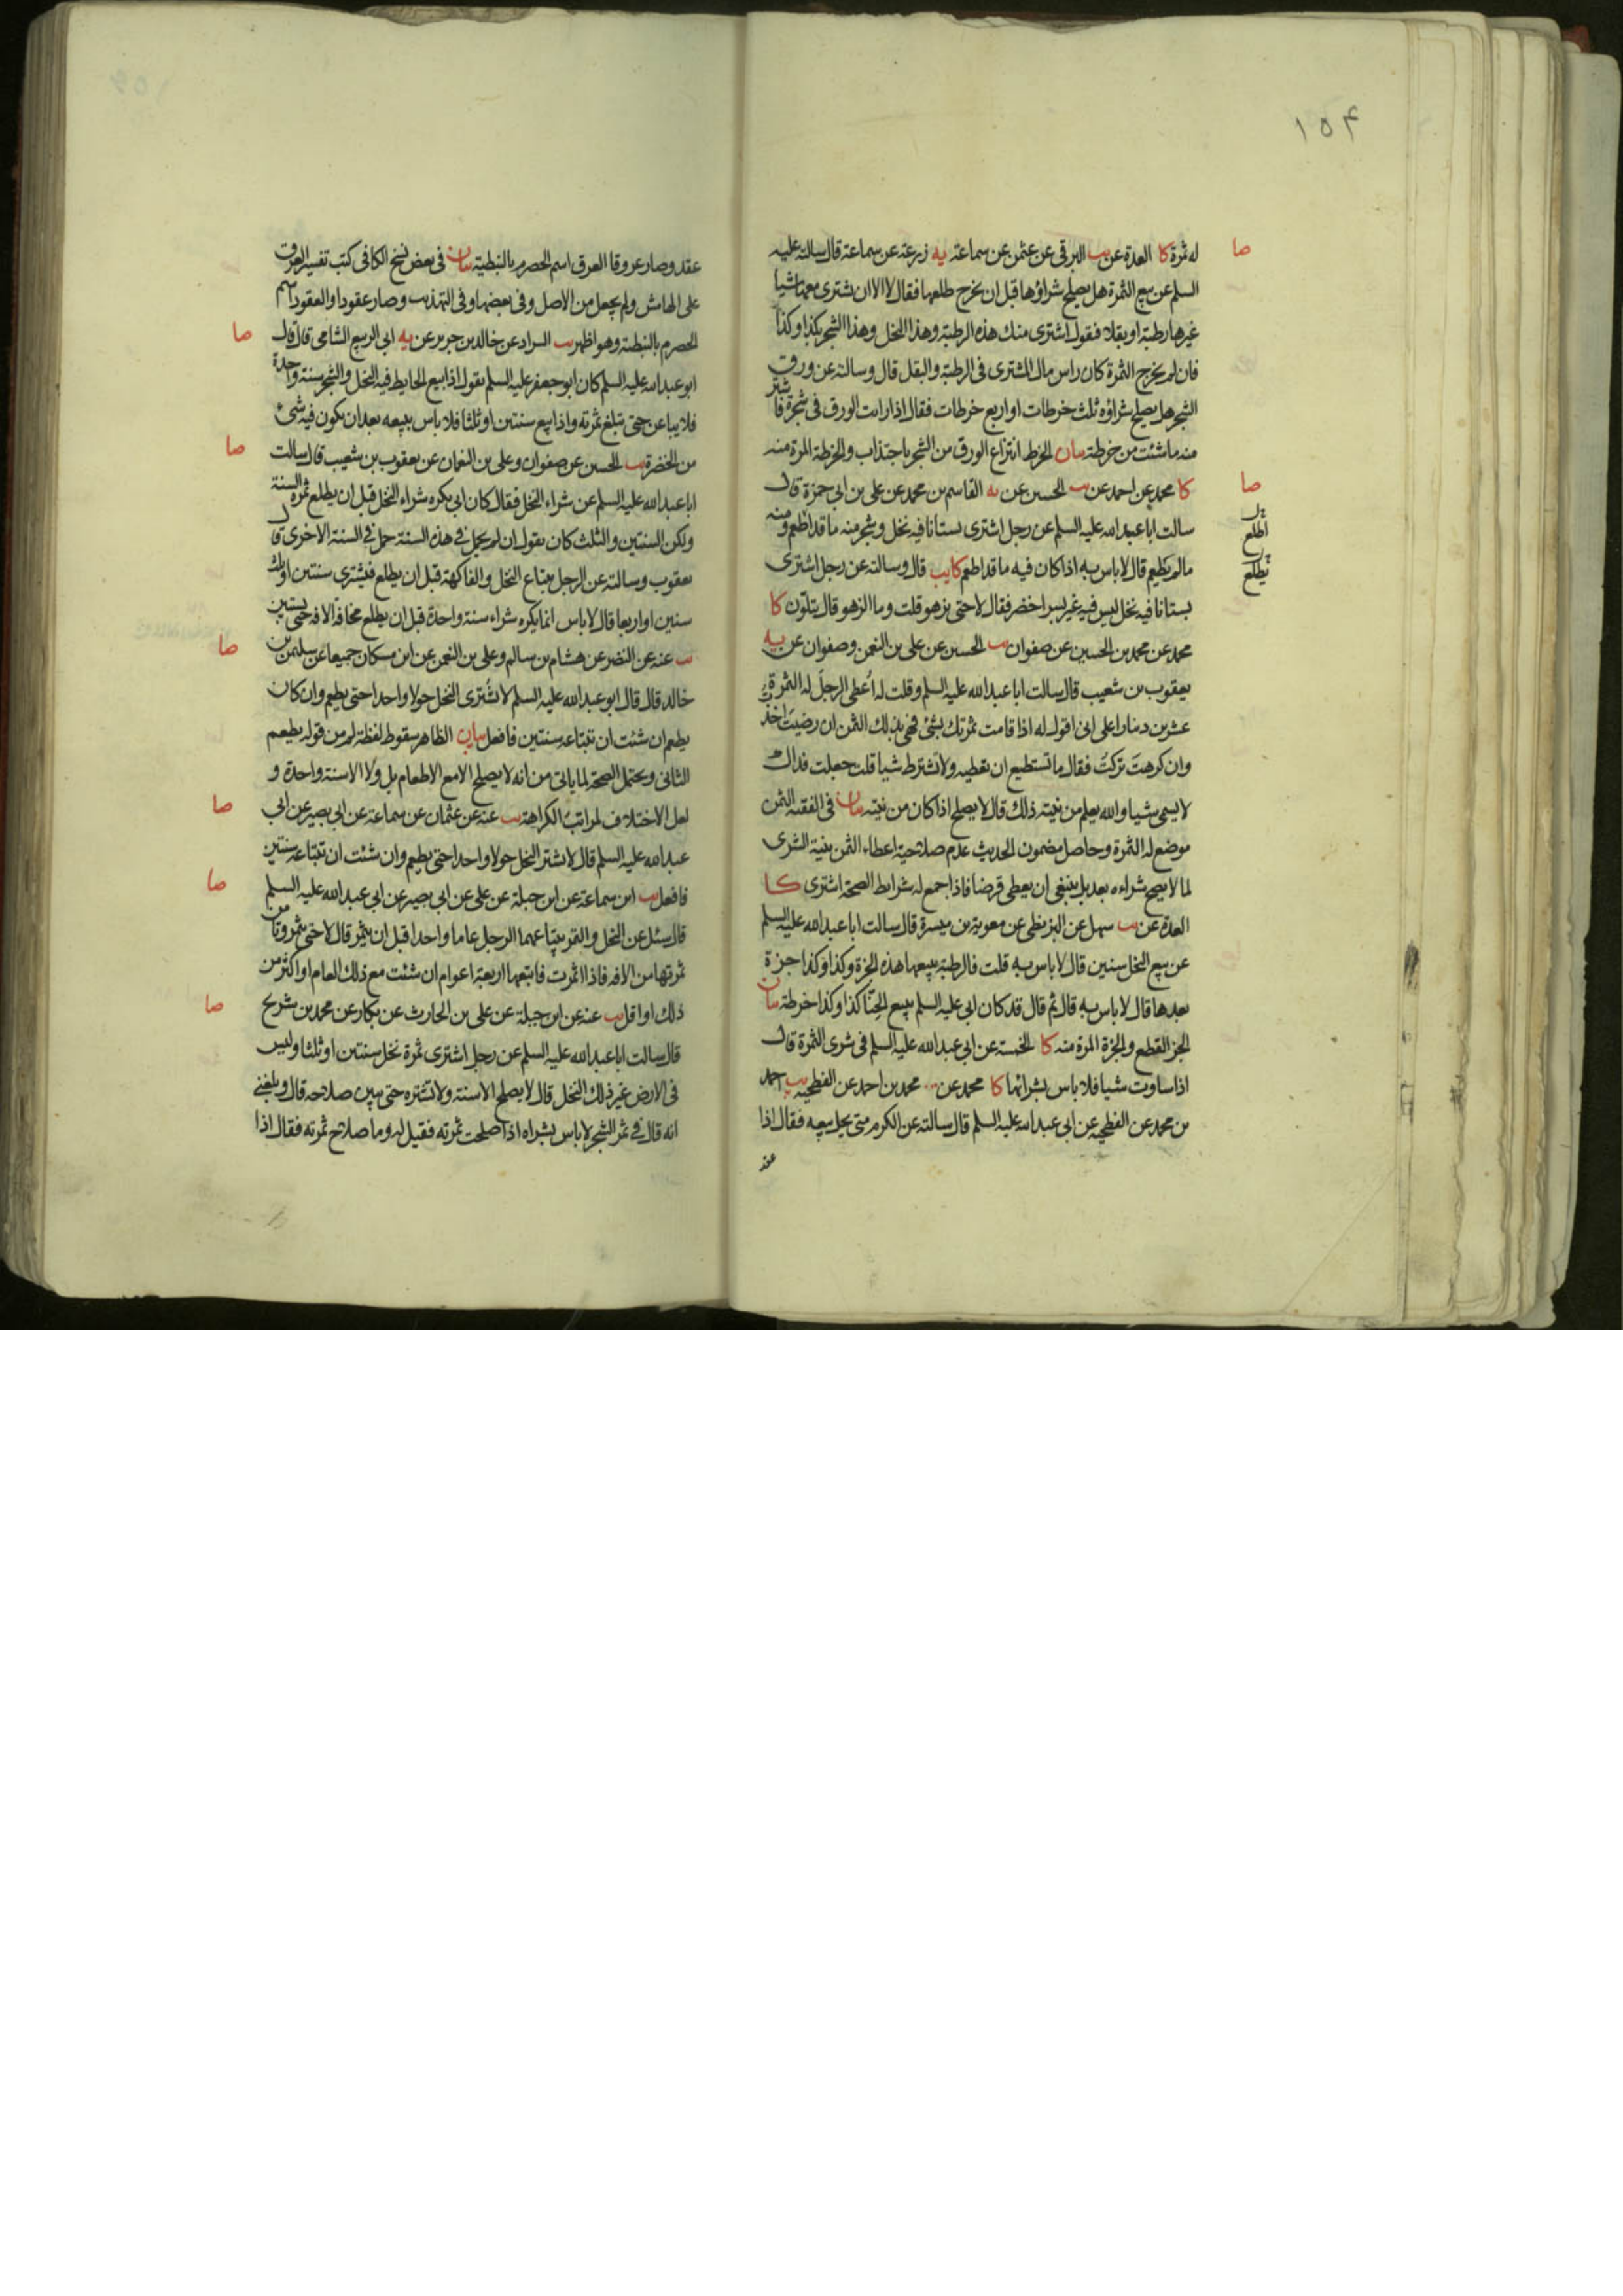 ١٥٤
له ثمرة كا العدة عن يب البرقى عن عثمن عن سماعة يه زرعة عن سماعة قال سالته عليه
السلم عن بيع الثمرة هل يصلح شراؤها قبل ان يخرج طلعها فقال لا الا ان يشترى معها شيا
غيرها رطبة او بقلا فيقول اشترى منك هذه الرطبة وهذا النخل وهذا الشجر بكذا وكذا
فان لم يخرج الثمرة كان راس مال المشترى فى الرطبة والبقل قال وسالته عن ورق
الشجر هل يصلح شراؤه ثلث خرطات او اربع خرطات فقال اذا رايت الورق فى شجرة فاشتر
منه ما شئت من خرطة بيان الخرط انتزاع الورق من الشجر باجتذاب والخرطة المرة منه
صا
كا محمد عن احمد عن يب الحسين عن يه القاسم بن محمد عن على بن ابى حمزة قال
سالت ابا عبد الله عليه السلم عن رجل اشترى بستانا فيه نخل وشجر منه ما قد اطعم ومنه
مالم يطعم قال لا باس به اذا كان فيه ما قد اطعم كا يب قال وسالته عن رجل اشترى
بستانا فيه نخل ليس فيه غير بسر اخضر فقال لا حتى يزهو قلت وما الزهو قال يتلون كا
محمد عن محمد بن الحسين عن صفوان يب الحسين عن على بن النعمن وصفوان عن يه
يعقوب بن شعيب قال سالت ابا عبد الله عليه السلم وقلت له اُعطى الرجلَ له الثمرة
عشرين دينارا على انى اقول له اذا قامت ثمرتك بشئ فهى لى بذلك الثمن ان رضيتَ اخذت
وان كرهتَ تركتُ فقال ما تستطيع ان تعطيه ولا تشترط شيا قلت جعلت فداك
لا يسمى شيا والله يعلم من نيته ذلك قال لا يصلح اذا كان من نيته بيان فى الفقيه الثمن
موضع له الثمرة وحاصل مضمون الحديث عدم صلاحية اعطاء الثمن بنية الشرى
لما لا يصح شراءه بعد بل ينبغى ان يعطى قرضا فاذا جمع له شرايط الصحة اشترى كا
العدة عن يب سهل عن البزنطى عن معوية بن ميسرة قال سالت ابا عبد الله عليه السلم
عن بيع النخل سنين قال لا باس به قلت فالرطبة يبيعها هذه الجزة وكذا وكذا جزة
بعدها قال لا باس به قال ثم قال قد كان ابى عليه السلم يبيع الحنّا كذا وكذا خرطة بيان
الجز القطع والجزة المرة منه كا الخمسة عن ابى عبد الله عليه السلم فى شرى الثمرة قال
اذا ساوت شيا فلا باس بشرائها كا محمد عن محمد بن احمد عن الفطحية يب احمد
بن محمد عن الفطحية عن ابى عبد الله عليه السلم قال سالته عن الكرم متى يحل بيعه فقال اذا
عقد
صا
اطلع
يطلع
عقد وصار عروقا العرق اسم الحصرم بالنبطية بيان فى بعض نسخ الكافى كتب تفسير العرق
على الهامش ولم يجعل من الاصل وفى بعضها وفى التهذيب وصار عقودا والعقود اسم
صا
الحصرم بالنبطية وهو اظهر يب السراد عن خالد بن جرير عن يه ابى الربيع الشامى قال قال
ابو عبد الله عليه السلم كان ابو جعفر عليه السلم يقول اذا بيع الحايط فيه النخل والشجر سنة واحدة
فلا يباعن حتى تبلغ ثمرته واذا بيع سنتين او ثلثا فلا باس ببيعه بعد ان يكون فيه شئ
صا
من الخضرة يب الحسين عن صفوان وعلى بن النعمان عن يعقوب بن شعيب قال سالت
ابا عبد الله عليه السلم عن شراء النخل فقال كان ابى يكره شراء النخل قبل ان يطلع ثمرة السنة
ولكن السنتين والثلث كان يقول ان لم يحمل فى هذه السنة حمل فى السنة الاخرى قال
يعقوب وسالته عن الرجل يبتاع النخل والفاكهة قبل ان يطلع فيشترى سنتين او ثلث
سنين او اربعا قال لا باس انما يكره شراء سنة واحدة قبل ان يطلع مخافة الافه حتى يستبين
صا
يب عنه عن النضر عن هشام بن سالم وعلى بن النعمن عن ابن مسكان جميعا عن سليمن بن
خالد قال قال ابو عبد الله عليه السلم لا تشترى النخل حولا واحدا حتى يطعم وان كان
يطعم ان شئت ان تبتاعه سنتين فافعل بيان الظاهر سقوط لفظة لم من قوله يطعم
الثانى ويحتمل الصحة لما ياتى من انه لا يصلح الا مع الاطعام بل ولا الا سنة واحدة و
صا
لعل الاختلاف لمراتب الكراهة يب عنه عن عثمان عن سماعة عن ابى بصير عن ابى
عبد الله عليه السلم قال لا تشتر النخل حولا واحدا حتى يطعم وان شئت ان تبتاعه سنتين
صا
فافعل يب ابن سماعة عن ابن جبلة عن على عن ابى بصير عن ابى عبد الله عليه السلم
قال سئل عن النخل والتمر يبتاعهما الرجل عاما واحدا قبل ان يثمر قال لا حتى يثمر وتامن
ثمرتها من الافه فاذا اثمرت فابتعها اربعة اعوام ان شئت مع ذلك العام او اكثر من
صا
ذلك او اقل يب عنه عن ابن جبلة عن على بن الحارث عن بكار عن محمد بن شريح
قال سالت ابا عبد الله عليه السلم عن رجل اشترى ثمرة نخل سنتين او ثلثا وليس
فى الارض غير ذلك النخل قال لا يصلح الا سنة ولا تشتره حتى يبين صلاحه قال وبلغنى
انه قال فى ثمر الشجر لا باس بشراه اذا صلحت ثمرته فقيل له وما صلاح ثمرته فقال اذا